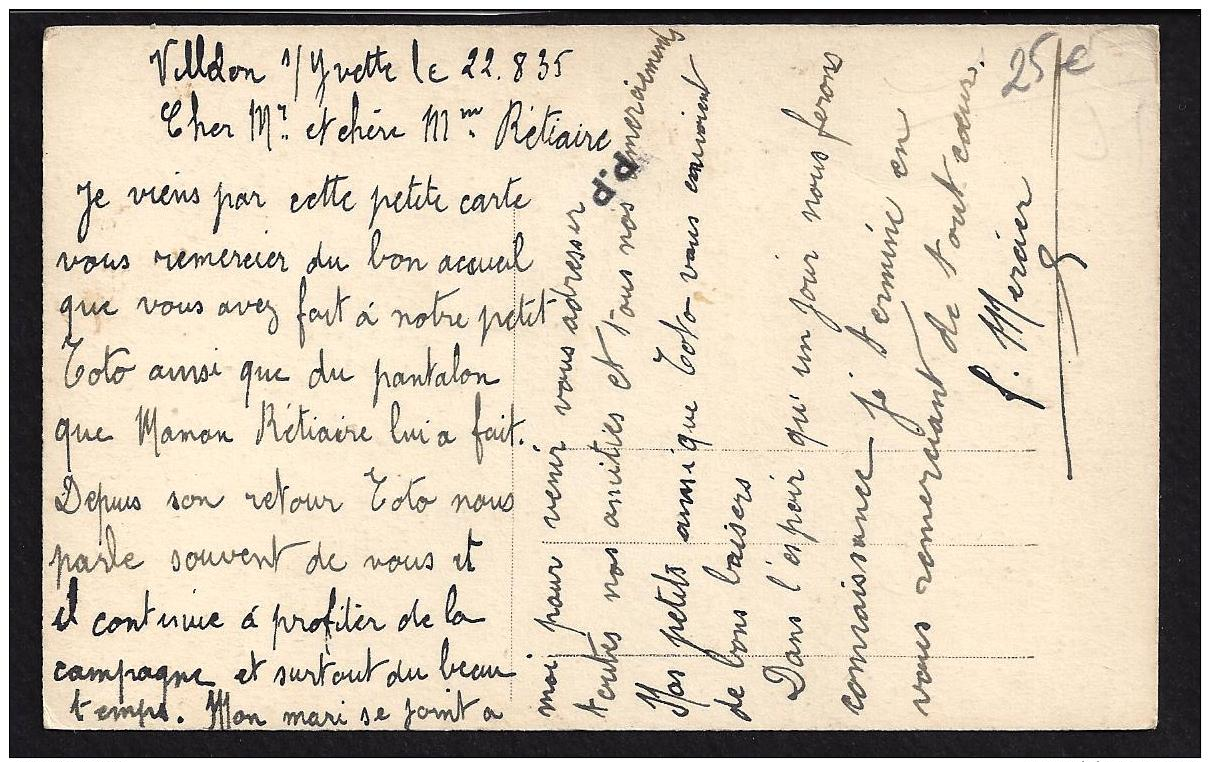 Villdon s/Yvette le 22.8.35
Cher Mr. et chère Mme. Rétiaire
Je viens par cette petite carte
vous remercier du bon accueil
que vous avez fait à notre petit
Toto ainsi que du pantalon
que Maman Rétiaire lui a fait.
Depuis son retour Toto nous
parle souvent de vous et
il continue à profiter de la
campagne et surtout du beau
temps. Mon mari se joint a
moi pour venir vous adresser
toutes nos amitiés et tous nos remerciements
Mes petits ainsi que Toto vous envoient
de bons baisers
Dans l'espoir qu'un jour nous ferons
connaissance je termine en
vous remerciant de tout cœur.
Mercier
d.d
25 €